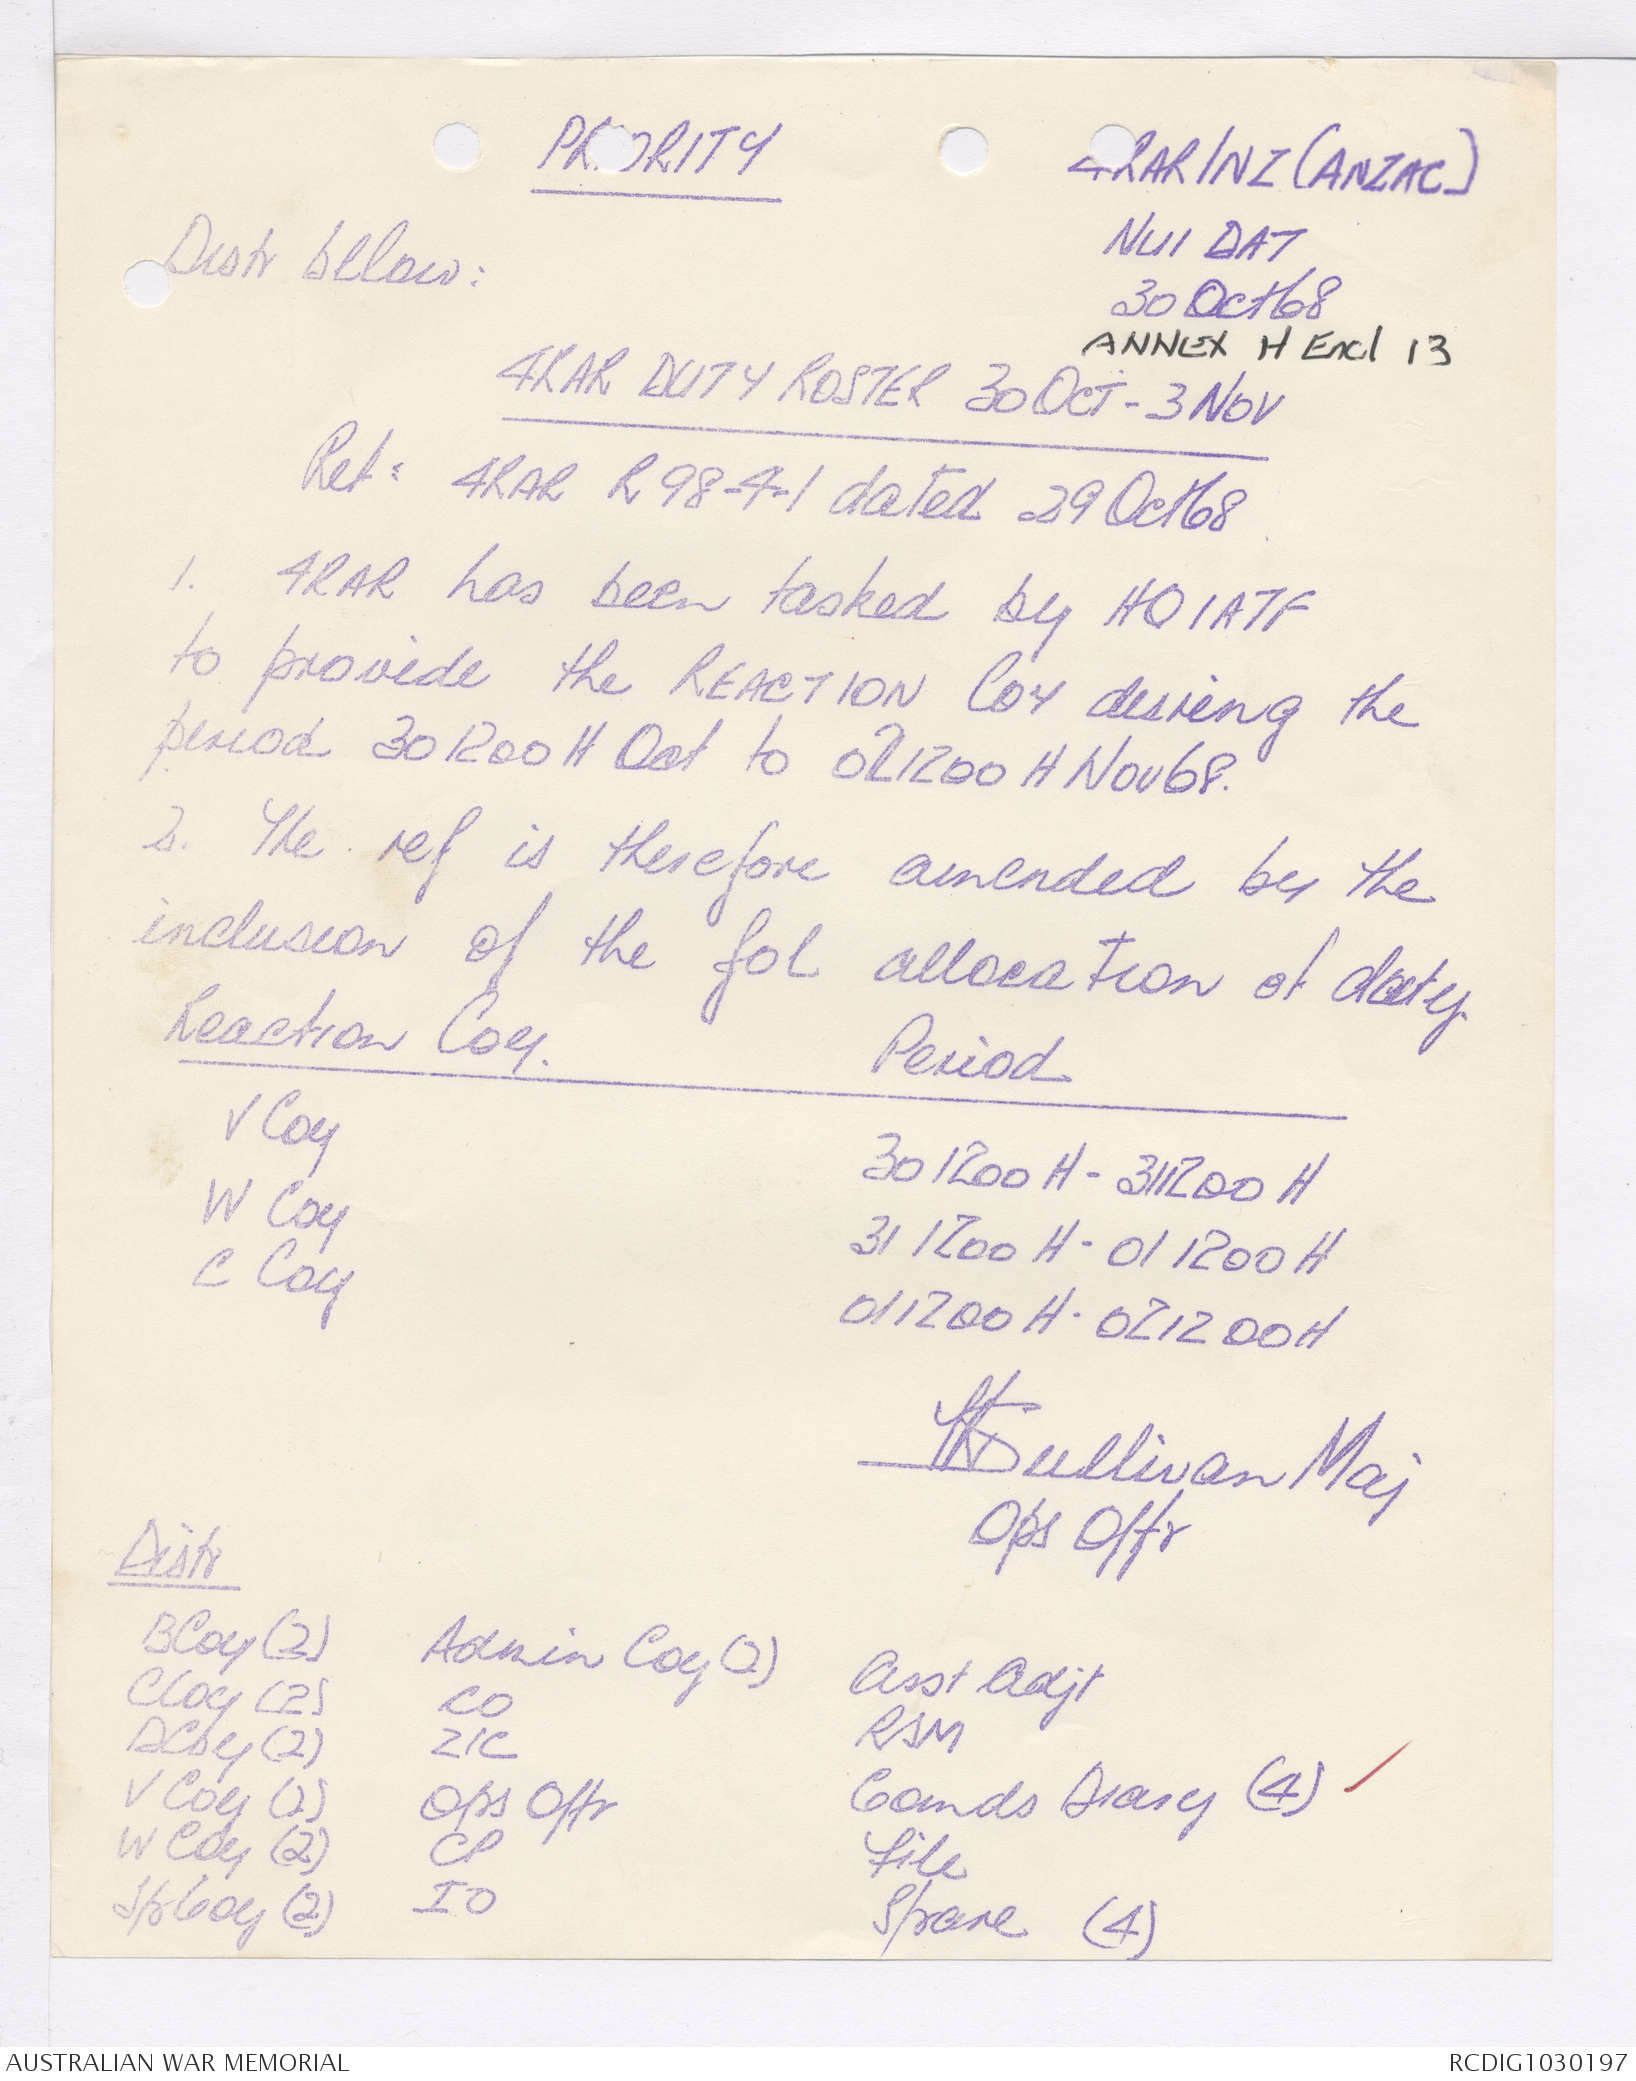 PRIORITY
4RAR/NZ (ANZAC)
NUI DAT
30 Oct 68
Distr below:
ANNEX H Encl 13
4RAR DUTY ROSTER 30 OCT - 3 NOV
Ref: 4RAR R 98-4-1 dated 29 Oct 68
1. 4RAR has been tasked by HQ 1ATF
to provide the REACTION Coy during the
period 301200 H Oct to 021200 H Nov 68.
2. The ref is therefore amended by the
inclusion of the fol allocation of duty.
Reaction Coy. Period
V Coy 301200 H - 311200 H
W Coy 311200 H - 011200 H
C Coy 011200 H - 021200 H
Sullivan Maj
Ops Offr
Distr
B Coy (2) Admin Coy (2) Asst Adjt
C Coy (2) CO RSM
D Coy (2) 2IC Comds Diary (4)
V Coy (2) Ops Offr File
W Coy (2) CP Spare (4)
Spt Coy (2) IO
AUSTRALIAN WAR MEMORIAL
RCDIG1030197